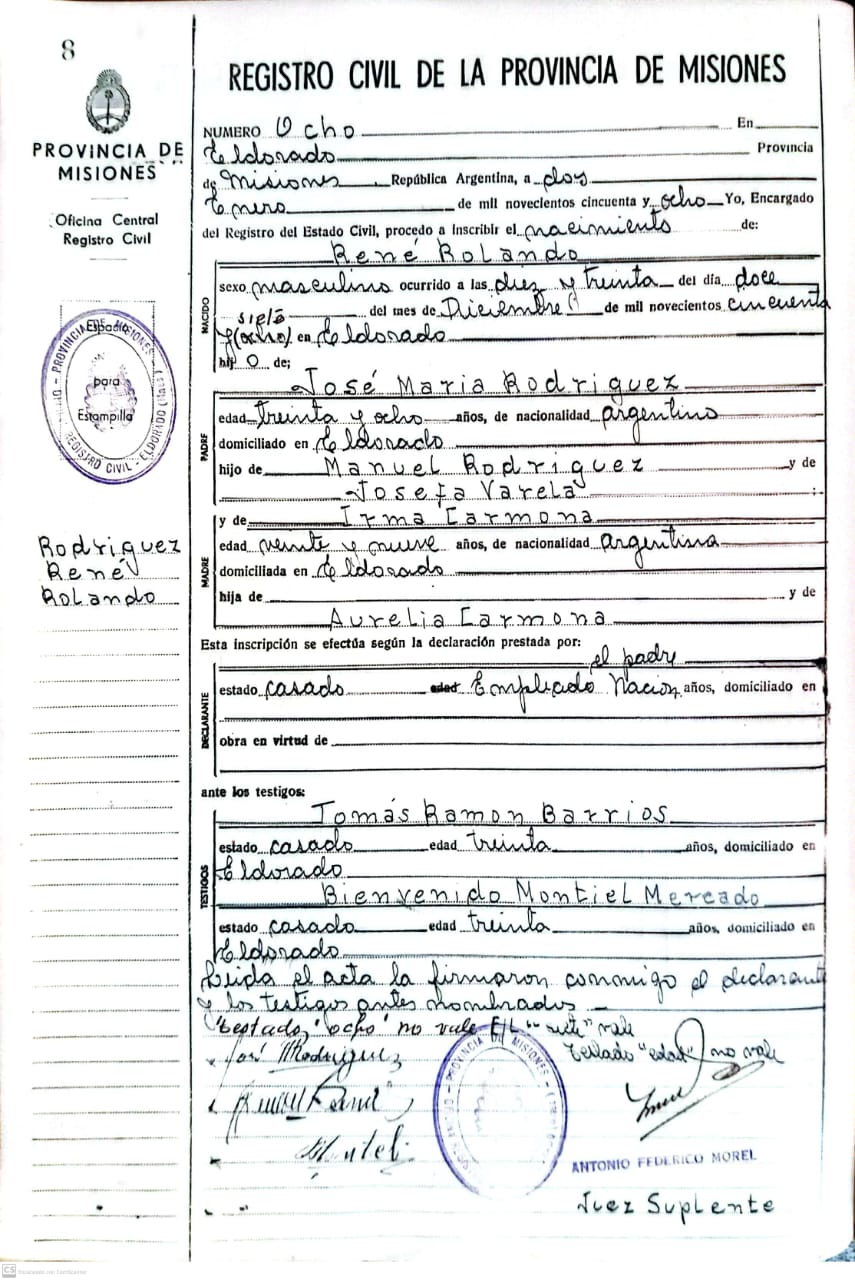 8
REGISTRO CIVIL DE LA PROVINCIA DE MISIONES
PROVINCIA DE
MISIONES
Oficina Central
Registro Civil
Espacio
para
Estampilla
PROVINCIA DE MISIONES
REGISTRO CIVIL - ELDORADO
Rodriguez
René
Rolando
NUMERO Ocho En
Eldorado Provincia
de Misiones República Argentina, a dos
Enero de mil novecientos cincuenta y ocho Yo, Encargado
del Registro del Estado Civil, procedo a inscribir el nacimiento de:
René Rolando
NACIDO
sexo masculino ocurrido a las diez y treinta del día doce
siete
del mes de Diciembre de mil novecientos cincuenta
y (ocho) en Eldorado
hijo de;
José Maria Rodriguez
PADRE
edad treinta y ocho años, de nacionalidad argentino
domiciliado en Eldorado
hijo de Manuel Rodriguez y de
Josefa Varela ;
y de Irma Carmona
MADRE
edad veinte y nueve años, de nacionalidad argentina
domiciliada en Eldorado
hija de y de
Aurelia Carmona
Esta inscripción se efectúa según la declaración prestada por:
el padre
DECLARANTE
estado casado edad Empleado Nacion años, domiciliado en
obra en virtud de
ante los testigos:
Tomás Ramon Barrios
TESTIGOS
estado casado edad treinta años, domiciliado en
Eldorado
Bienvenido Montiel Mercado
estado casado edad treinta años, domiciliado en
Eldorado
Leida el acta la firmaron conmigo el declarante
y los testigos antes nombrados
"testado "ocho" no vale E/L "siete" vale
Tellado "edad" no vale
José M Rodriguez
PROVINCIA DE MISIONES
ANTONIO FEDERICO MOREL
Juez Suplente
CS Escaneado con CamScanner